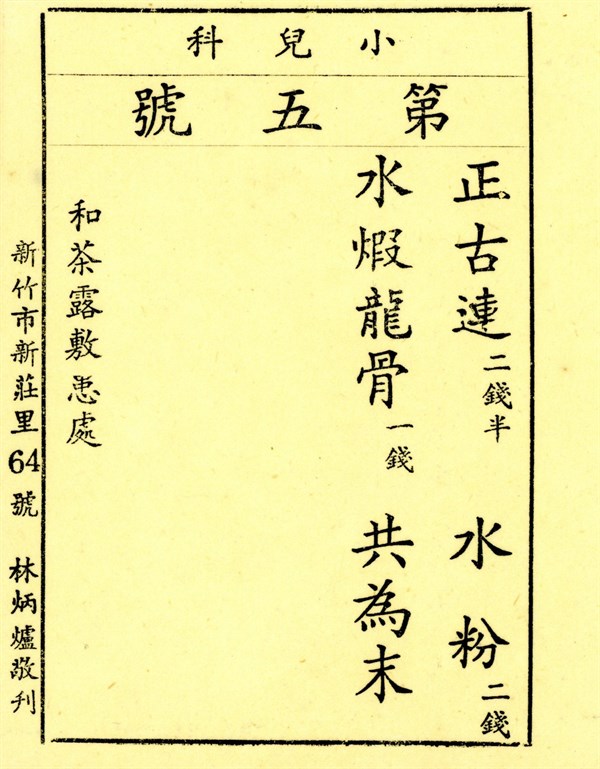 小兒科
第五號
正古連二錢半 水粉二錢
水煆龍骨一錢 共為末
和茶露敷患處
新竹市新莊里64號 林炳爐敬刊